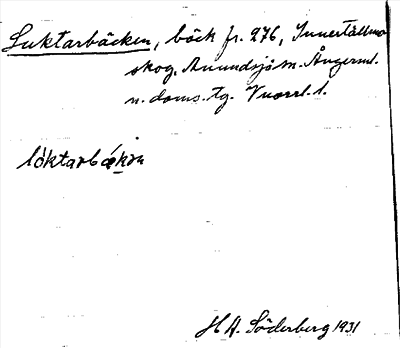 Luktarbäcken, bäck fr. 276, Innertällmo
skog. Anundsjö sn. Ångerml.
n. doms. tg. Vnorrl. l.
lóktarbækən
H A. Söderberg 1931